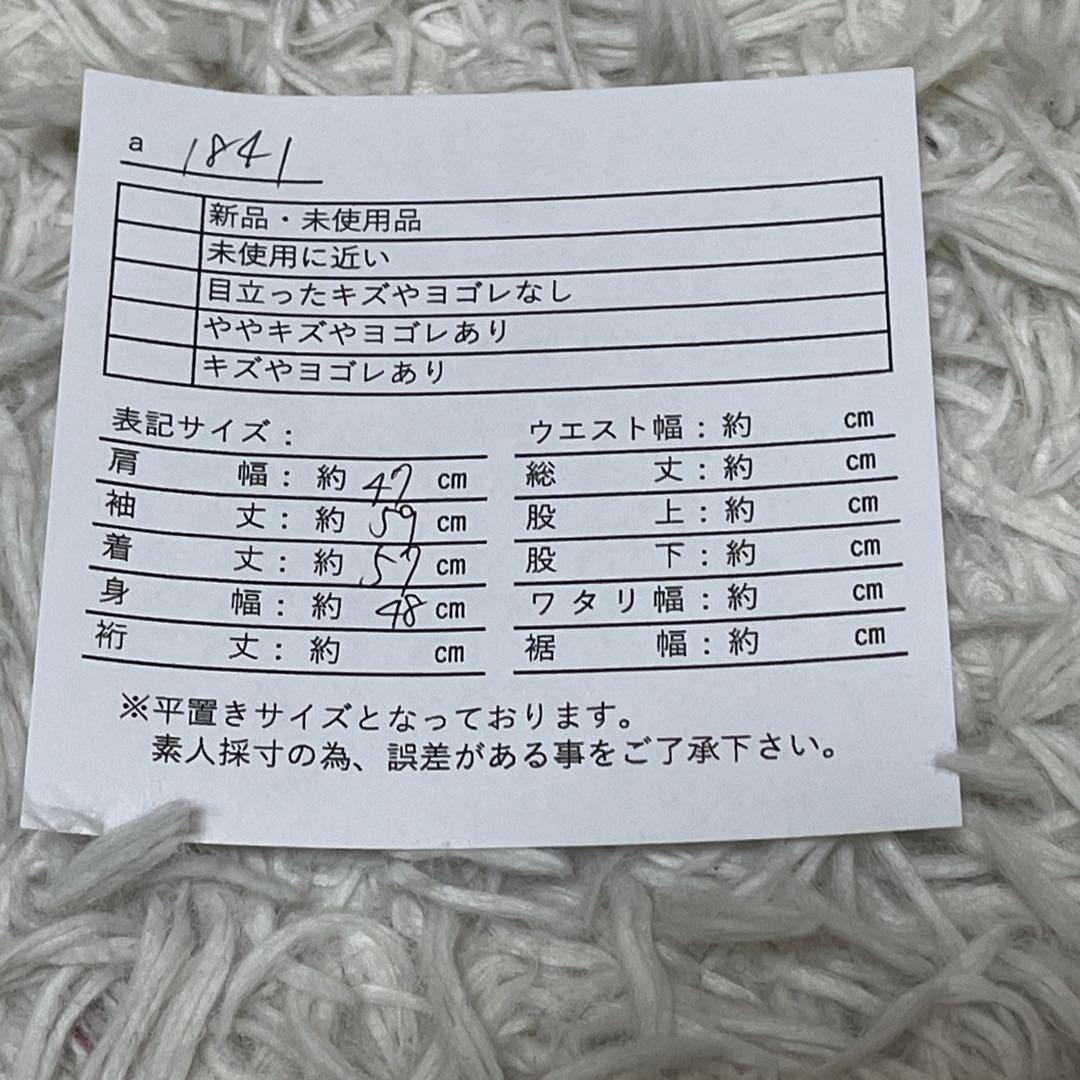 a 1841
新品・未使用品
未使用に近い
目立ったキズやヨゴレなし
ややキズやヨゴレあり
キズやヨゴレあり
表記サイズ：
肩幅：約 47 cm
袖丈：約 59 cm
着丈：約 57 cm
身幅：約 48 cm
裄丈：約 cm
ウエスト幅：約 cm
総丈：約 cm
股上：約 cm
股下：約 cm
ワタリ幅：約 cm
裾幅：約 cm
※平置きサイズとなっております。
素人採寸の為、誤差がある事をご了承下さい。